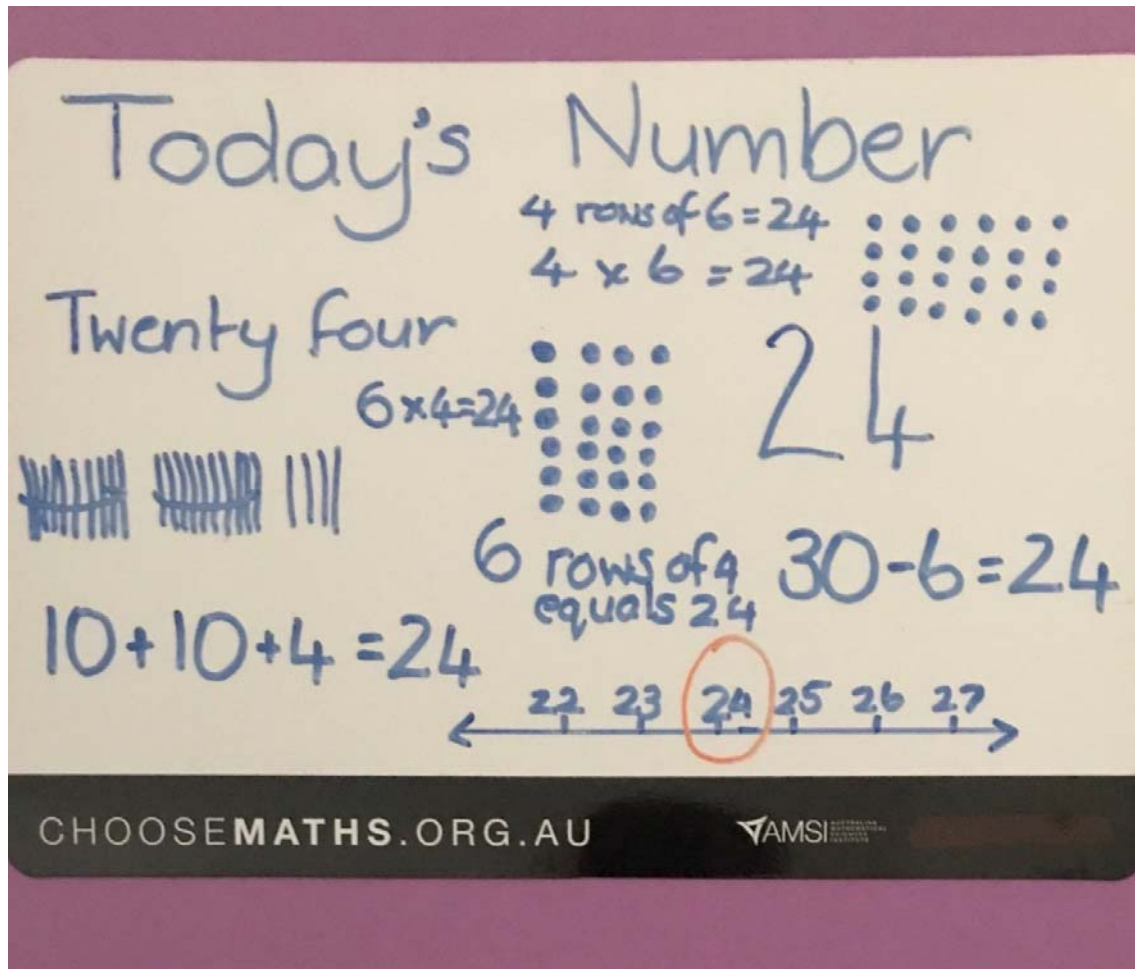 Today's Number
4 rows of 6 = 24
4 x 6 = 24
Twenty four
6 x 4 = 24
24
6 rows of 4
equals 24
30 - 6 = 24
10 + 10 + 4 = 24
22 23 24 25 26 27
CHOOSEMATHS.ORG.AU
AMSI AUSTRALIAN
MATHEMATICAL
SCIENCES
INSTITUTE